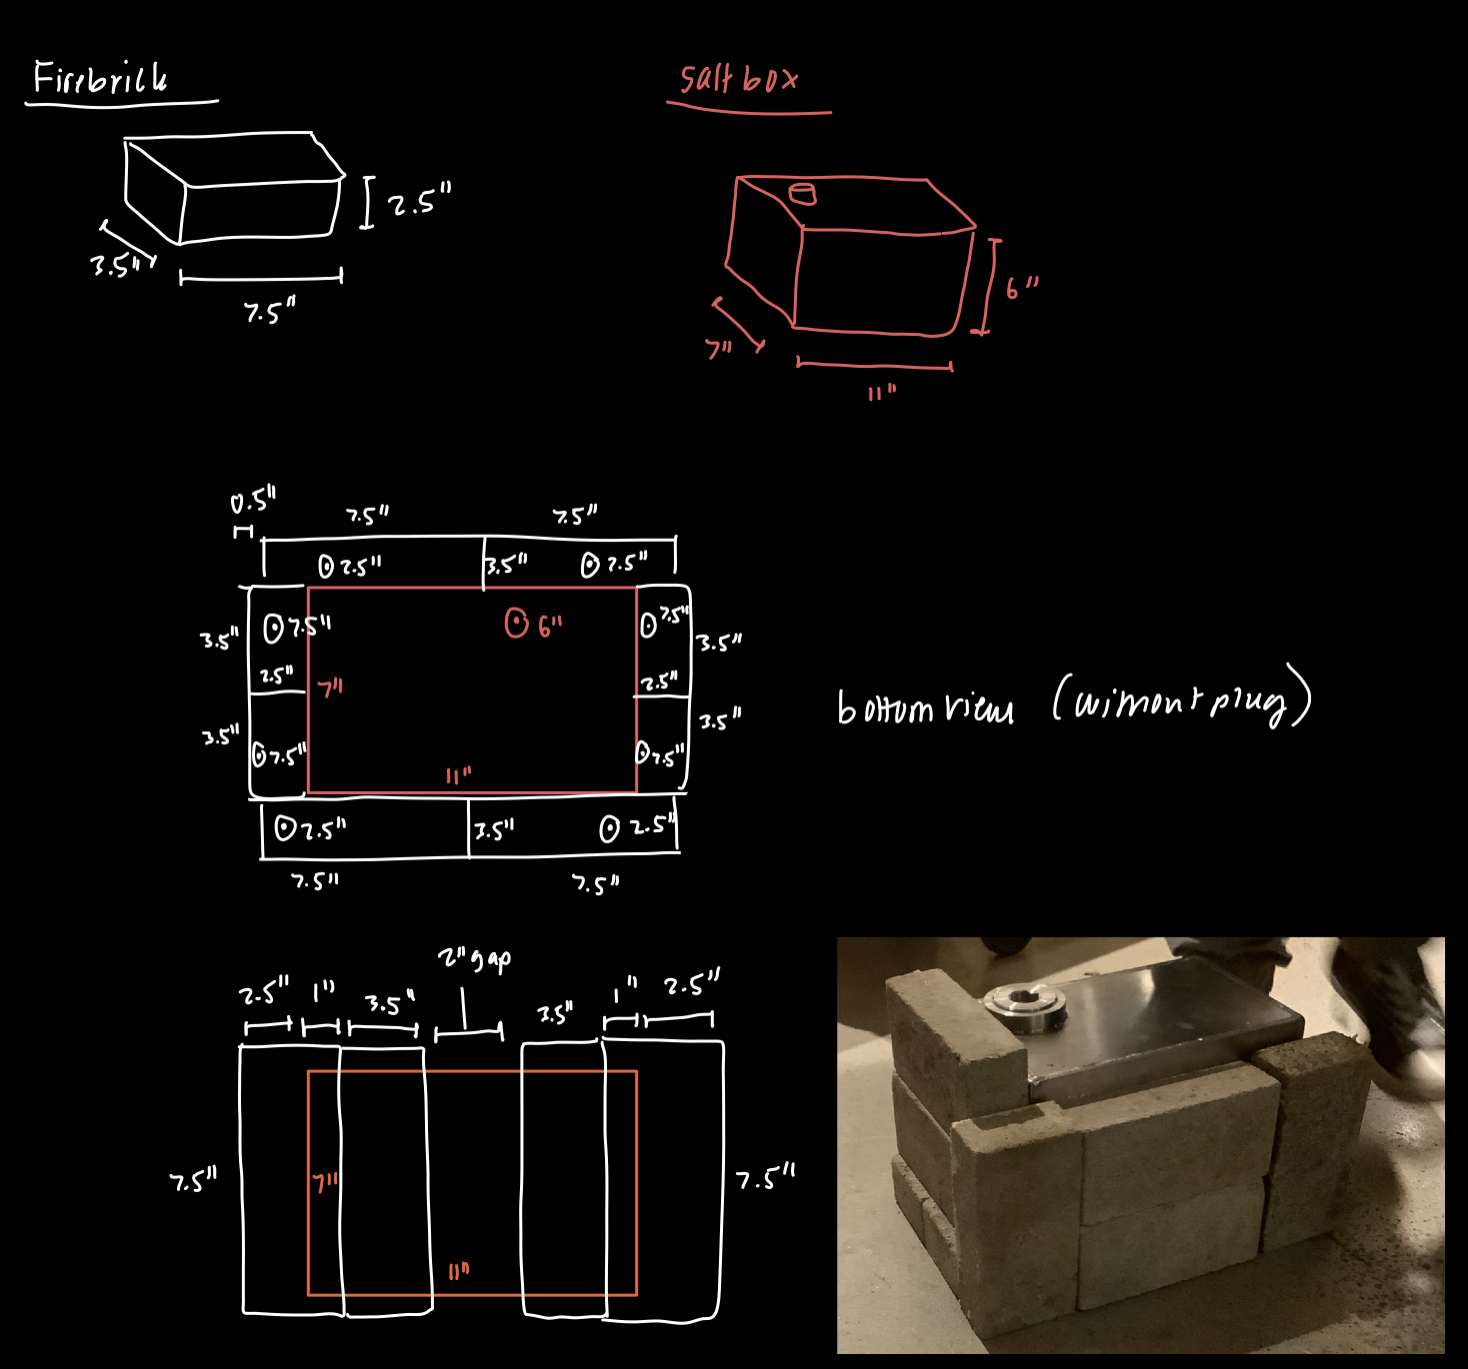 Firebrick
salt box
2.5"
3.5"
7.5"
6"
7"
11"
0.5"
7.5" 7.5"
2.5" 3.5" 2.5"
3.5" 7.5" 6" 7.5" 3.5"
2.5" 7" 2.5"
3.5" 7.5" 7.5" 3.5"
11"
2.5" 3.5" 2.5"
7.5" 7.5"
bottom view (without plug)
2" gap
2.5" 1" 3.5" 3.5" 1" 2.5"
7.5" 7" 7.5"
11"